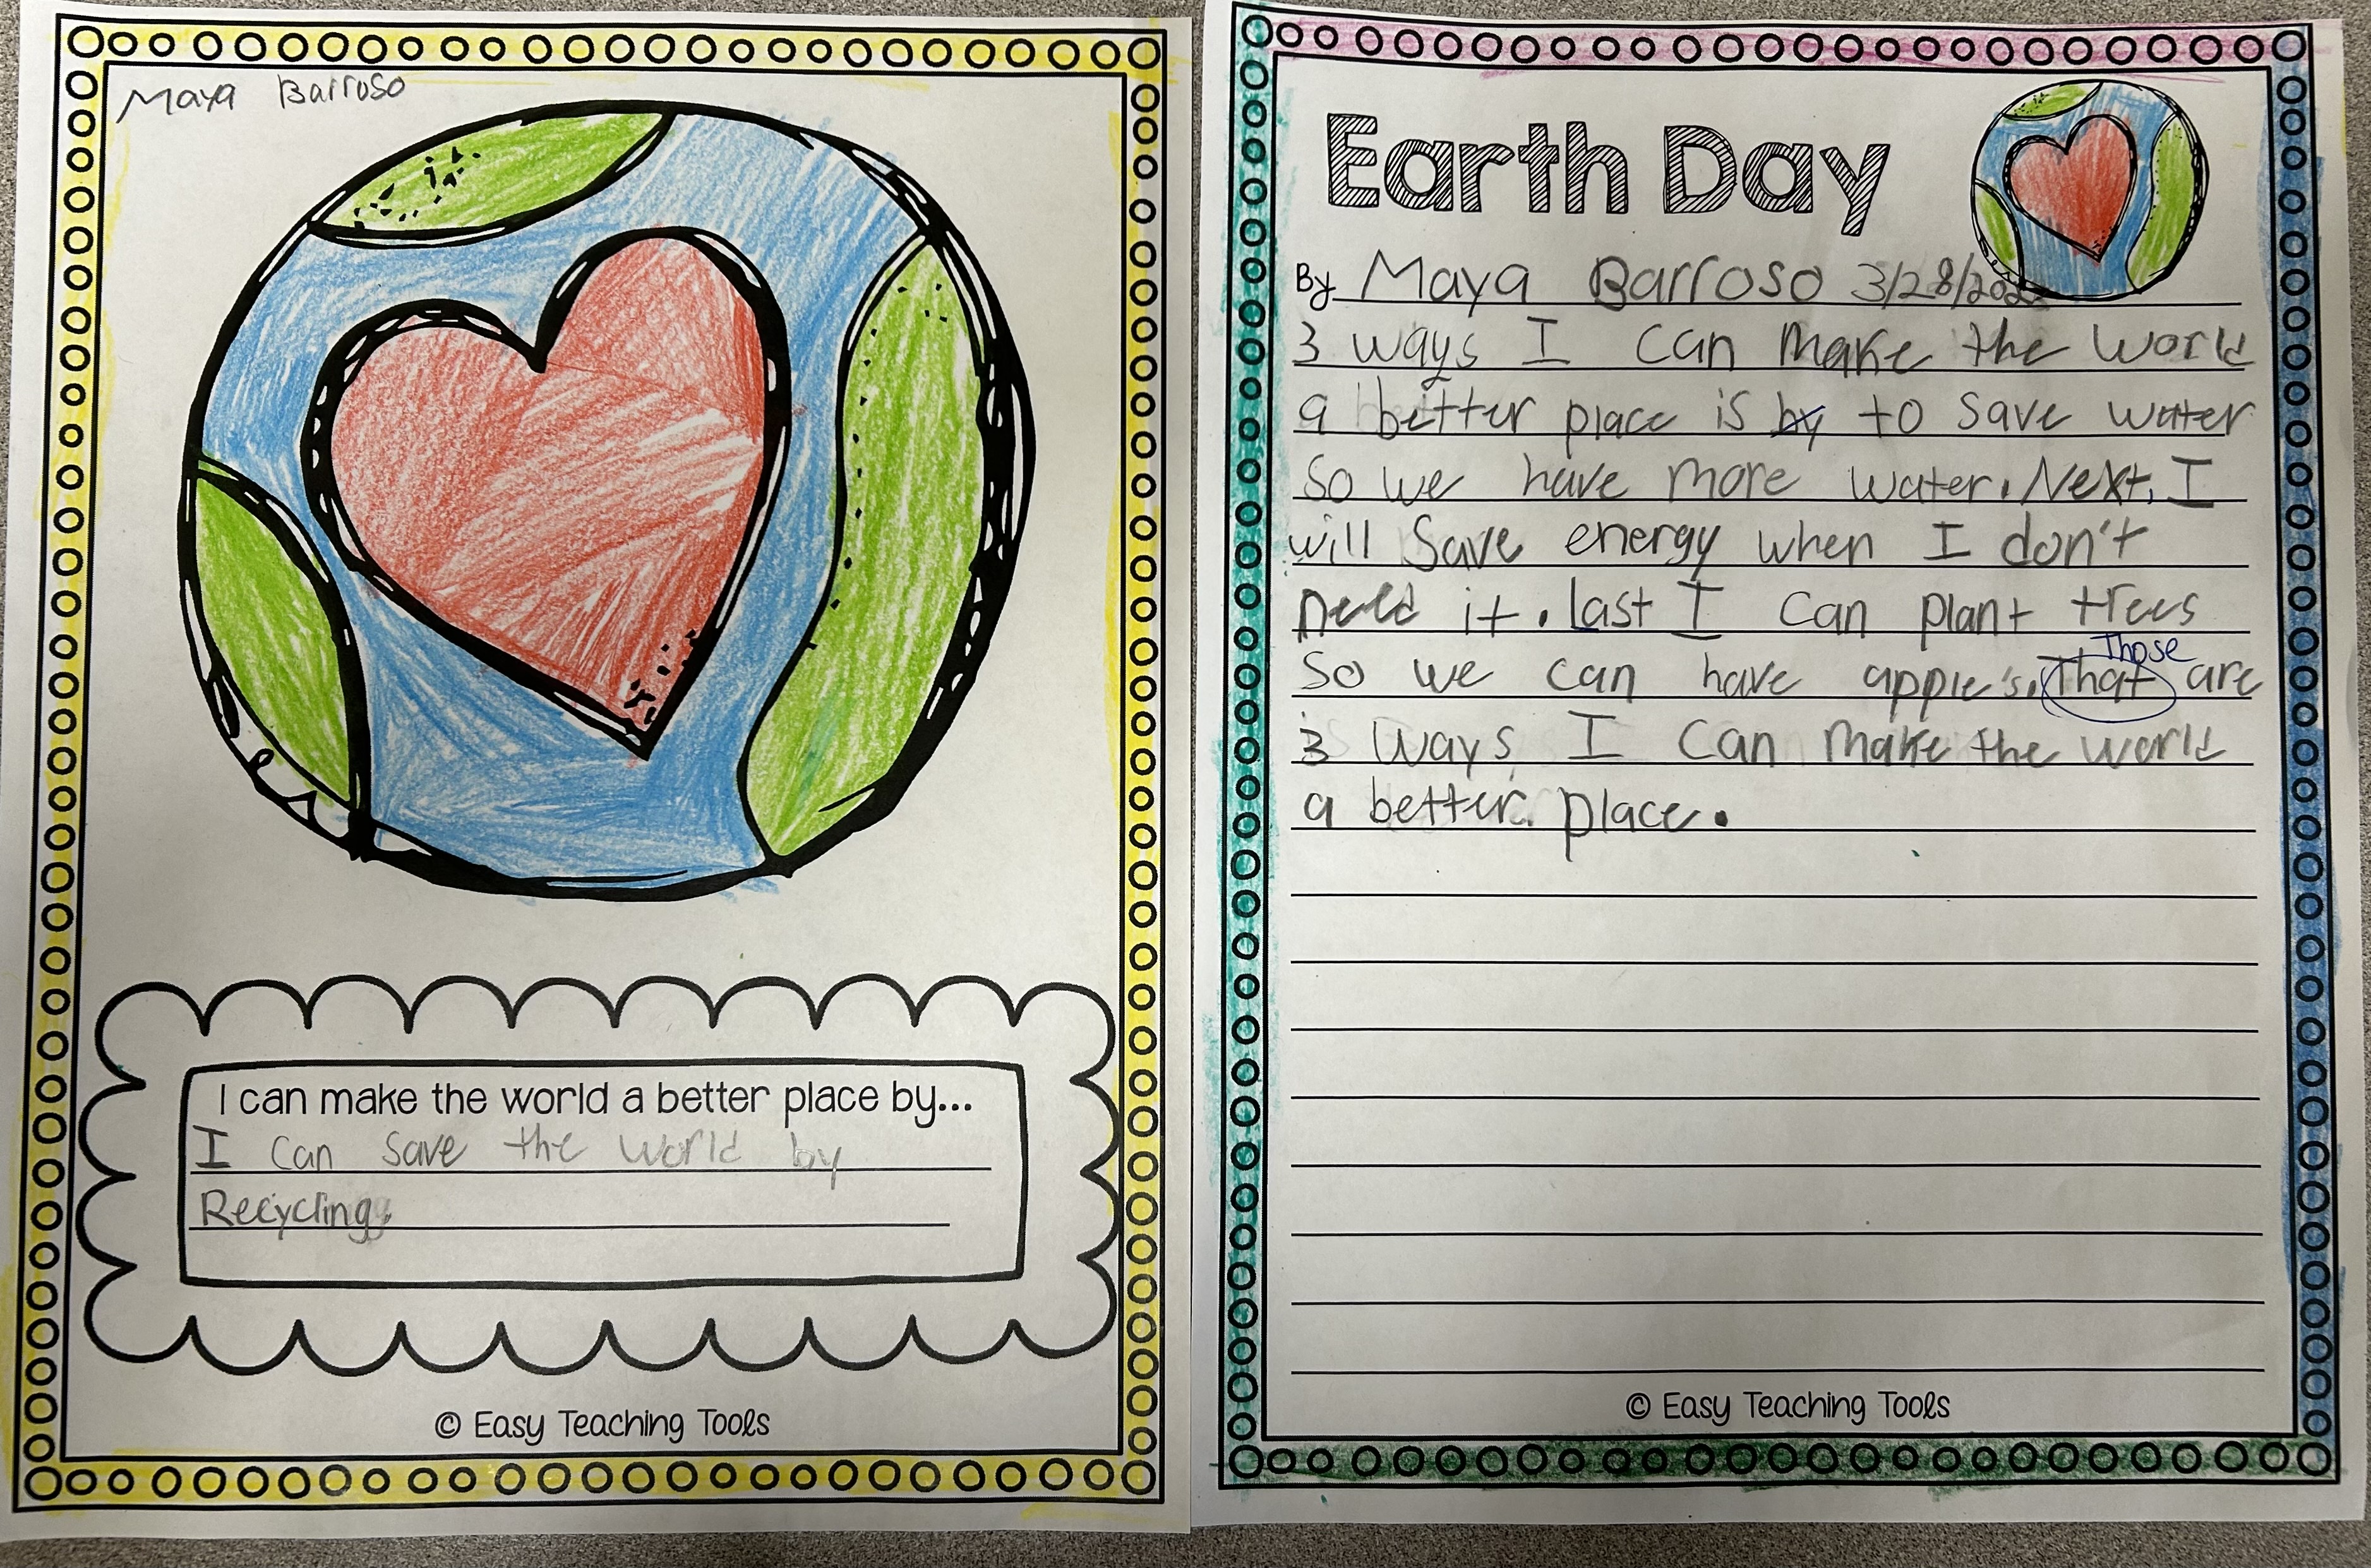 Maya Barroso
I can make the world a better place by...
I can save the world by
Recycling.
© Easy Teaching Tools
Earth Day
By Maya Barroso 3/28/202
3 ways I can make the world
a better place is by to save water
So we have more water. Next, I
will Save energy when I don't
need it. last I can plant trees
Those
So we can have apple's. That are
3 ways I can make the world
a better place.
© Easy Teaching Tools